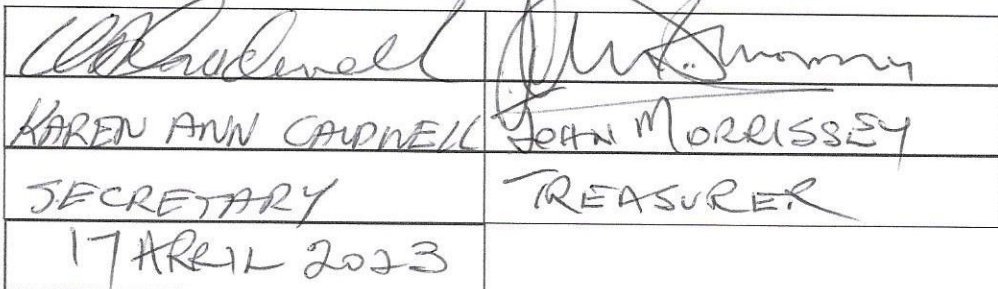 KAREN ANN CALDWELL
JOHN MORRISSEY
SECRETARY
TREASURER
17 APRIL 2023